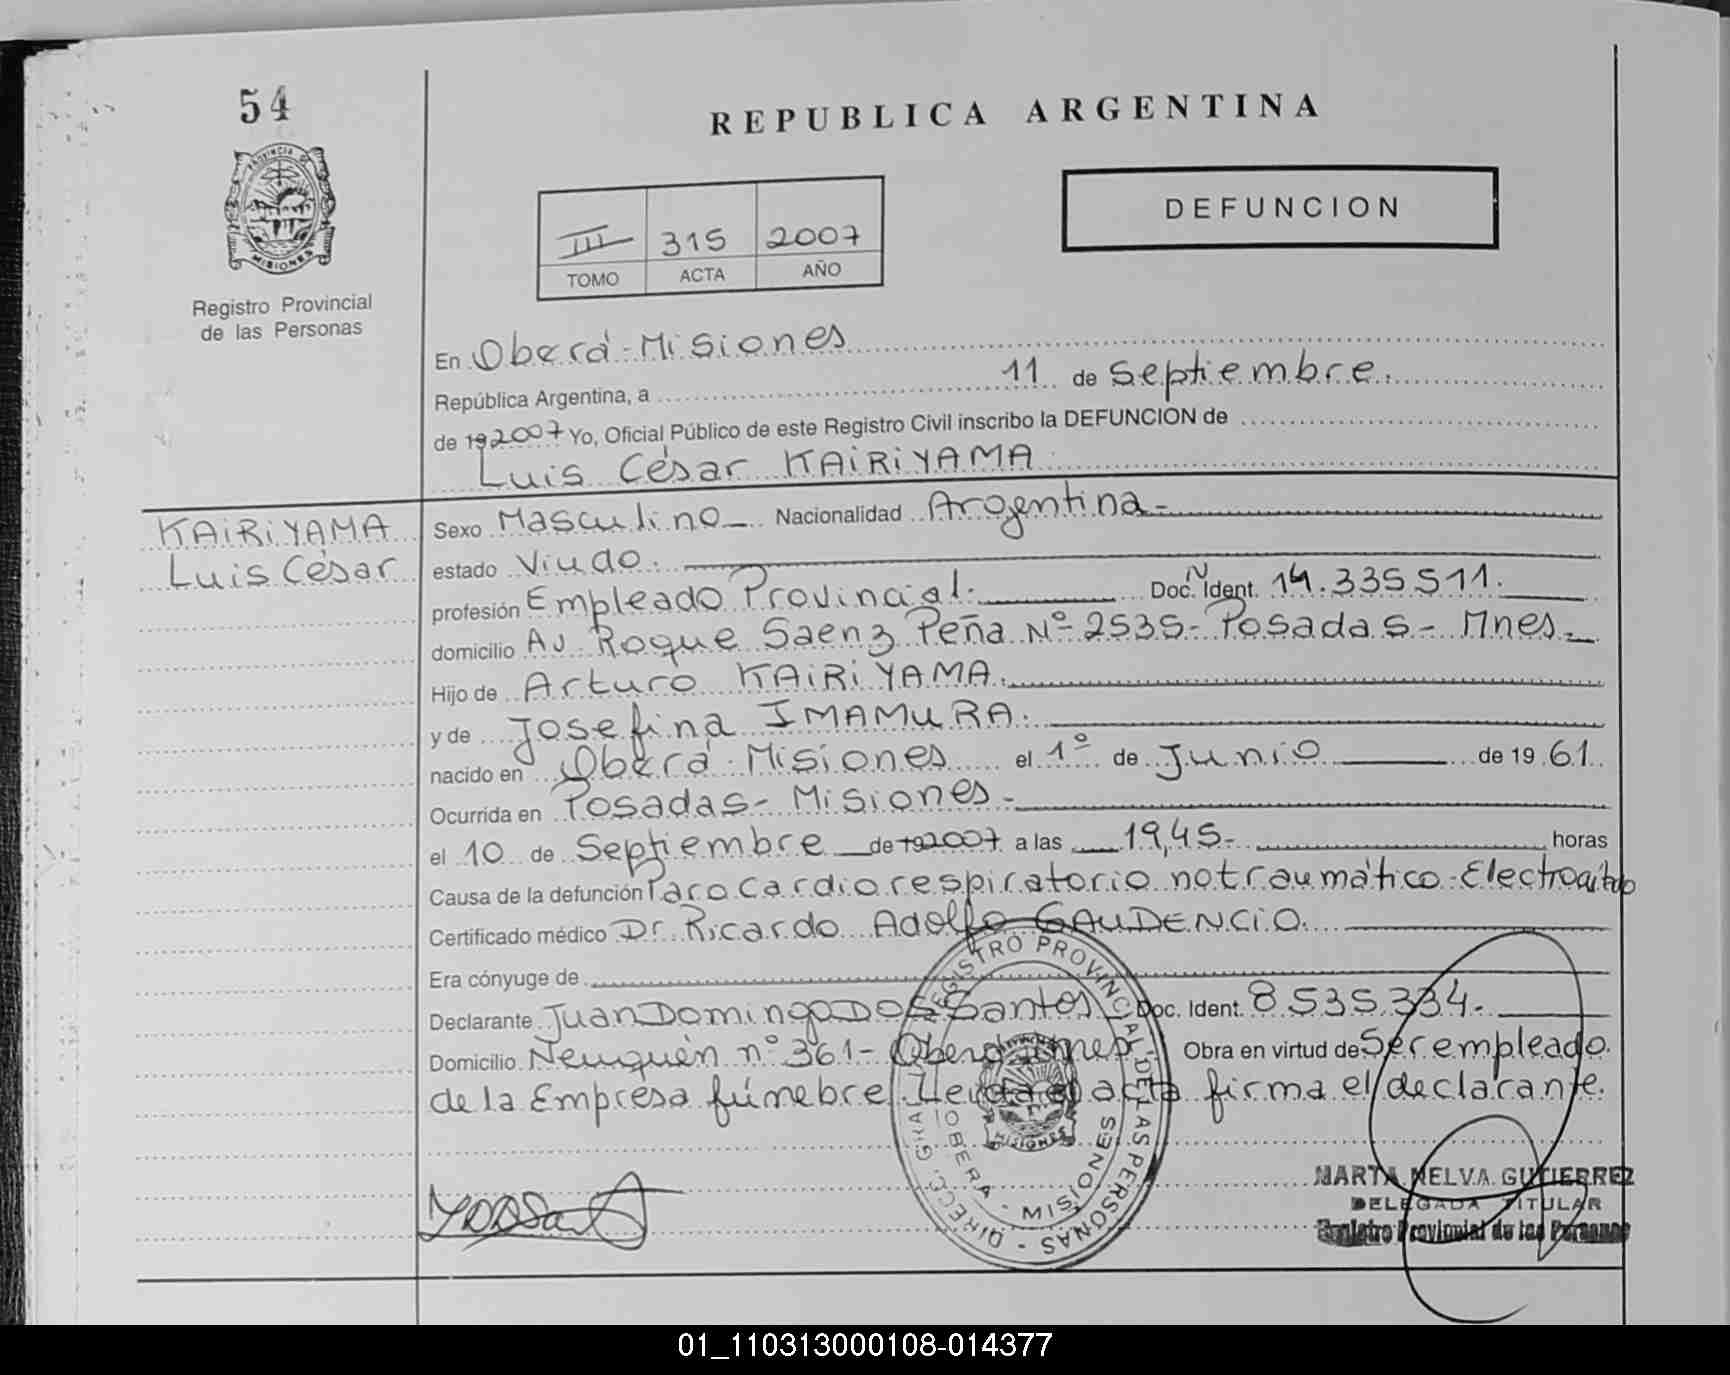 54
REPUBLICA ARGENTINA
PROVINCIA DE
MISIONES
Registro Provincial
de las Personas
III 315 2007
TOMO ACTA AÑO
DEFUNCION
En Oberá-Misiones
República Argentina, a 11 de Septiembre.
de 192007 Yo, Oficial Público de este Registro Civil inscribo la DEFUNCION de
Luis César KAIRIYAMA
KAIRIYAMA
Luis César
Sexo Masculino Nacionalidad Argentina-
estado Viudo.
profesión Empleado Provincial. Doc. N Ident. 14.335.511.
domicilio Av. Roque Saenz Peña Nº 2535- Posadas- Mnes.
Hijo de Arturo KAIRIYAMA.
y de Josefina IMAMURA.
nacido en Oberá-Misiones el 1º de Junio de 19 61.
Ocurrida en Posadas- Misiones-
el 10 de Septiembre de 192007 a las 19,45- horas
Causa de la defunción Paro cardiorespiratorio no traumático-
Certificado médico Dr. Ricardo Adolfo GAUDENCIO.
Era cónyuge de
Declarante Juan Domingo DOS Santos Doc. Ident. 8.535.334-
Domicilio Neuquén nº 361- Oberá-Mnes. Obra en virtud de Ser empleado
de la Empresa fúnebre. Leida el acta firma el declarante.
DIRECC. GRAL. DE REGISTRO PROVINCIAL DE LAS PERSONAS -
OBERA - MISIONES
MISIONES
MARTA NELVA GUTIERREZ
DELEGADA TITULAR
Registro Provincial de las Personas
01_110313000108-014377